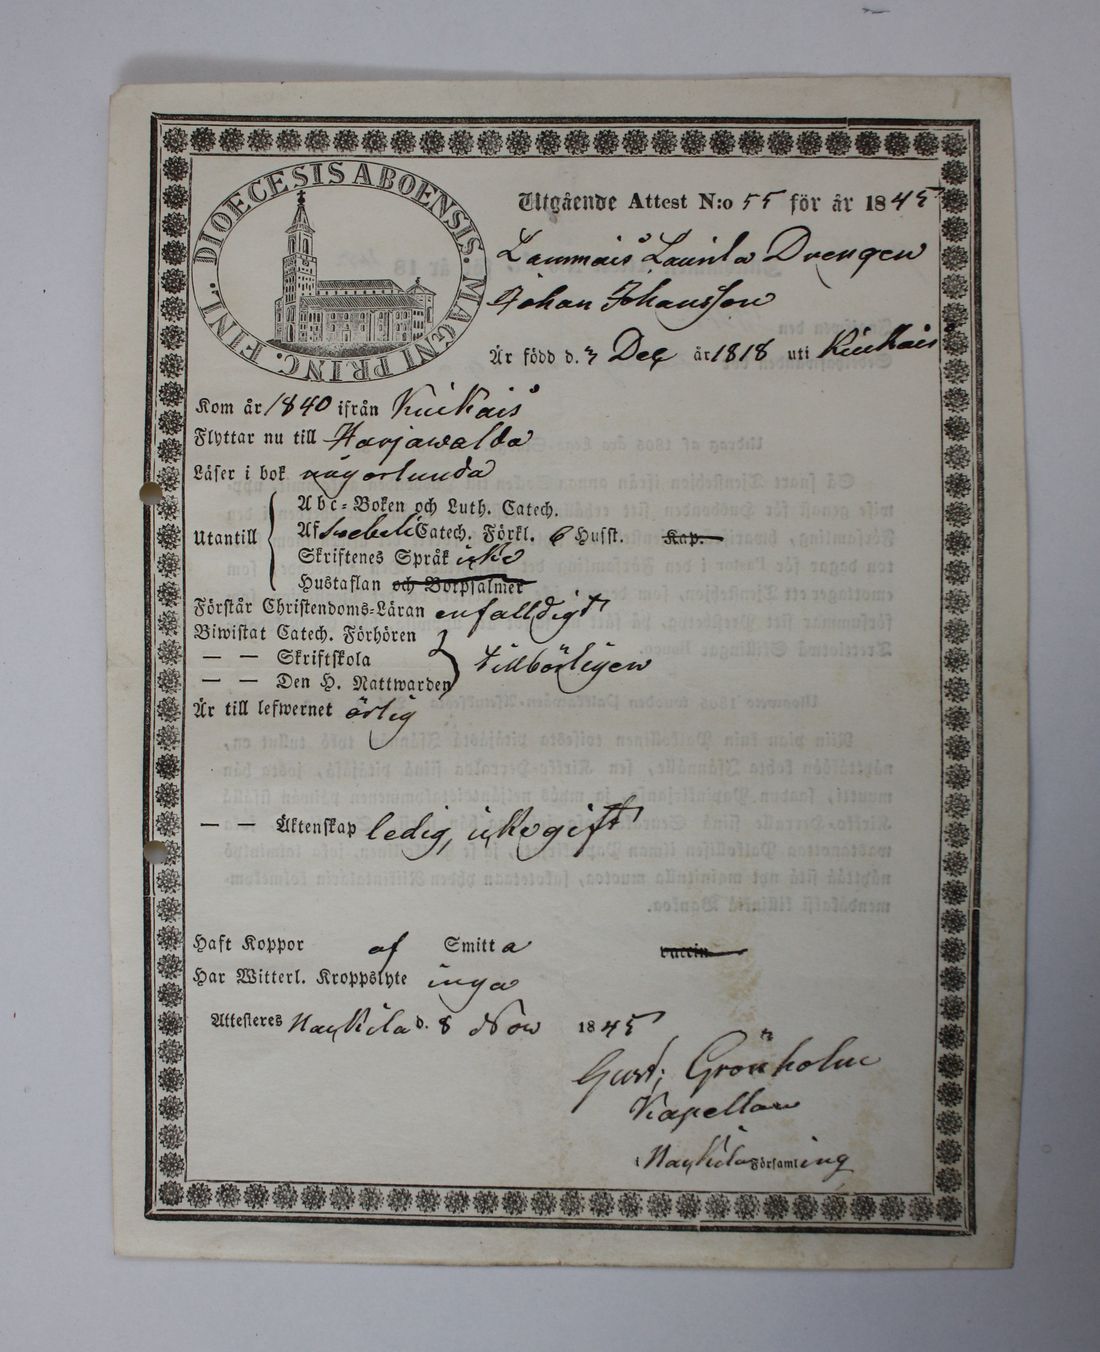 DIOECESIS ABOENSIS. MAGNI PRINC. FINL.
Utgående Attest N:o 55 för år 1845
Lammais Laurila Drengen
Johan Johansson
Är född d. 3 Dec år 1818 uti Kiukais
Kom år 1840 ifrån Kiukais
Flyttar nu till Harjawalda
Läser i bok någorlunda
Utantill
Abc-Boken och Luth. Catech.
Af Svebeli Catech. Förkl. 6 Husst. Kap.
Skriftenes Språk icke
Hustaflan och Botpsalmer
Förstår Christendoms-Läran enfalldigt
Biwistat Catech. Förhören
— — Skriftskola tillbörligen
— — Den H. Nattwarden
Är till lefwernet ärlig
— — Äktenskap ledig, icke gift
Haft Koppor af Smitta vaccin
Har Witterl. Kroppslyte inga
Attesteres Nackila d. 8 Nov 1845
Gust; Grönholm
Kapellan
i Nackila Församling